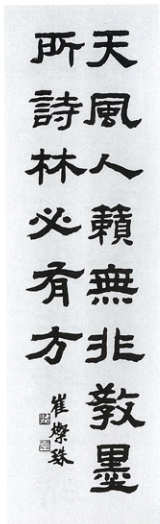 天風人籟無非敎墨
所詩林必有方
崔燦珠